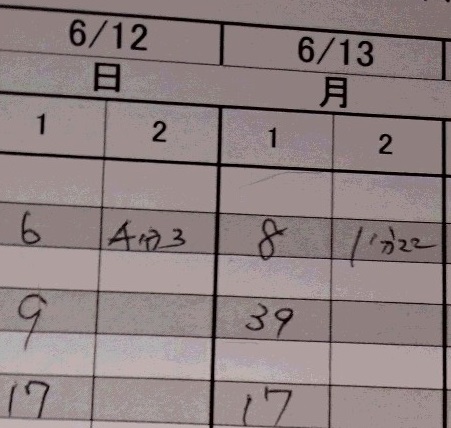 6/12 6/13
日 月
1 2 1 2
6 4分3 8 1分22
9 39
17 17